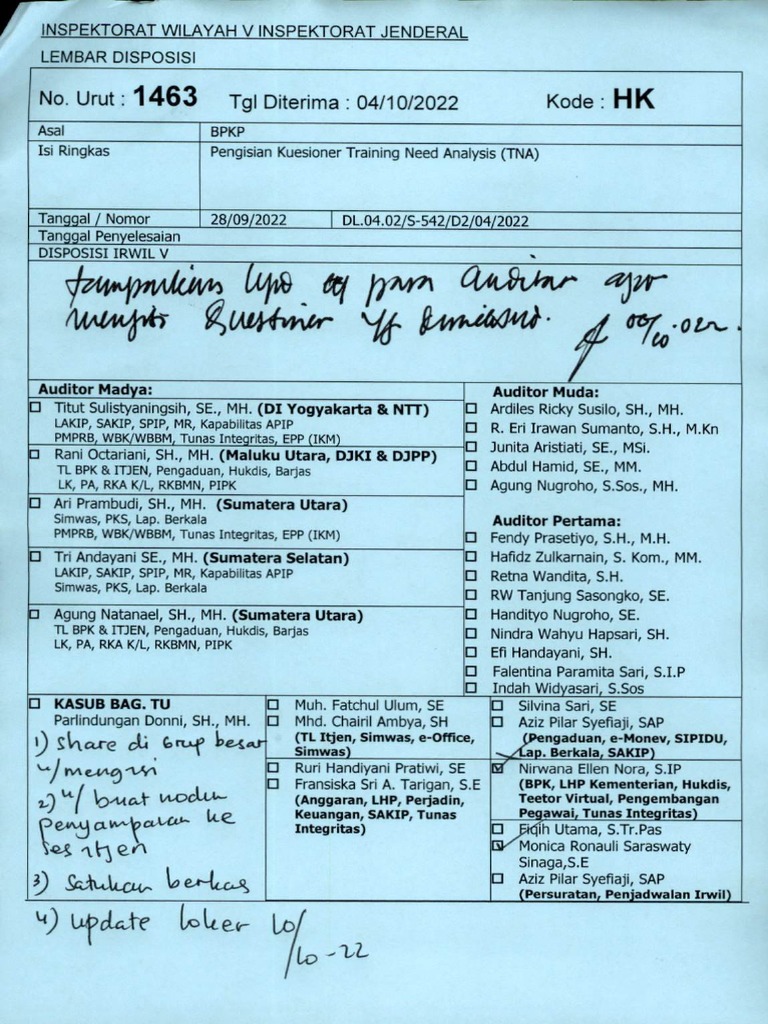 INSPEKTORAT WILAYAH V INSPEKTORAT JENDERAL
LEMBAR DISPOSISI
No. Urut : 1463 Tgl Diterima : 04/10/2022 Kode : HK
Asal BPKP
Isi Ringkas Pengisian Kuesioner Training Need Analysis (TNA)
Tanggal / Nomor 28/09/2022 DL.04.02/S-542/D2/04/2022
Tanggal Penyelesaian
DISPOSISI IRWIL V
para Auditor
Auditor Madya:
☐ Titut Sulistyaningsih, SE., MH. (DI Yogyakarta & NTT)
LAKIP, SAKIP, SPIP, MR, Kapabilitas APIP
PMPRB, WBK/WBBM, Tunas Integritas, EPP (IKM)
☐ Rani Octariani, SH., MH. (Maluku Utara, DJKI & DJPP)
TL BPK & ITJEN, Pengaduan, Hukdis, Barjas
LK, PA, RKA K/L, RKBMN, PIPK
☐ Ari Prambudi, SH., MH. (Sumatera Utara)
Simwas, PKS, Lap. Berkala
PMPRB, WBK/WBBM, Tunas Integritas, EPP (IKM)
☐ Tri Andayani SE., MH. (Sumatera Selatan)
LAKIP, SAKIP, SPIP, MR, Kapabilitas APIP
Simwas, PKS, Lap. Berkala
☐ Agung Natanael, SH., MH. (Sumatera Utara)
TL BPK & ITJEN, Pengaduan, Hukdis, Barjas
LK, PA, RKA K/L, RKBMN, PIPK
Auditor Muda:
☐ Ardiles Ricky Susilo, SH., MH.
☐ R. Eri Irawan Sumanto, S.H., M.Kn
☐ Junita Aristiati, SE., MSi.
☐ Abdul Hamid, SE., MM.
☐ Agung Nugroho, S.Sos., MH.
Auditor Pertama:
☐ Fendy Prasetiyo, S.H., M.H.
☐ Hafidz Zulkarnain, S. Kom., MM.
☐ Retna Wandita, S.H.
☐ RW Tanjung Sasongko, SE.
☐ Handityo Nugroho, SE.
☐ Nindra Wahyu Hapsari, SH.
☐ Efi Handayani, SH.
☐ Falentina Paramita Sari, S.I.P
☐ Indah Widyasari, S.Sos
☐ KASUB BAG. TU
Parlindungan Donni, SH., MH.
1) share di Grup besar
u/ mengisi
2) u/ buat nodin
penyampaian ke
ses itjen
3) Satukan berkas
4) update loker 10/
10-22
☐ Muh. Fatchul Ulum, SE
☐ Mhd. Chairil Ambya, SH
(TL Itjen, Simwas, e-Office,
Simwas)
☐ Ruri Handiyani Pratiwi, SE
☐ Fransiska Sri A. Tarigan, S.E
(Anggaran, LHP, Perjadin,
Keuangan, SAKIP, Tunas
Integritas)
☐ Silvina Sari, SE
☐ Aziz Pilar Syefiaji, SAP
(Pengaduan, e-Monev, SIPIDU,
Lap. Berkala, SAKIP)
☑ Nirwana Ellen Nora, S.IP
(BPK, LHP Kementerian, Hukdis,
Teetor Virtual, Pengembangan
Pegawai, Tunas Integritas)
☐ Fiqih Utama, S.Tr.Pas
☑ Monica Ronauli Saraswaty
Sinaga,S.E
☐ Aziz Pilar Syefiaji, SAP
(Persuratan, Penjadwalan Irwil)